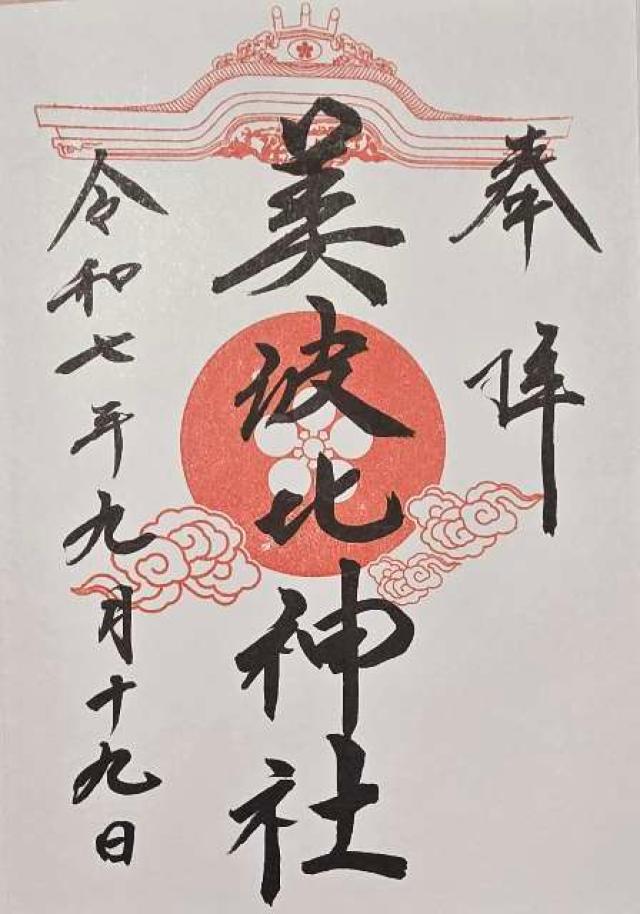 奉拝
美波比神社
令和七年九月十九日